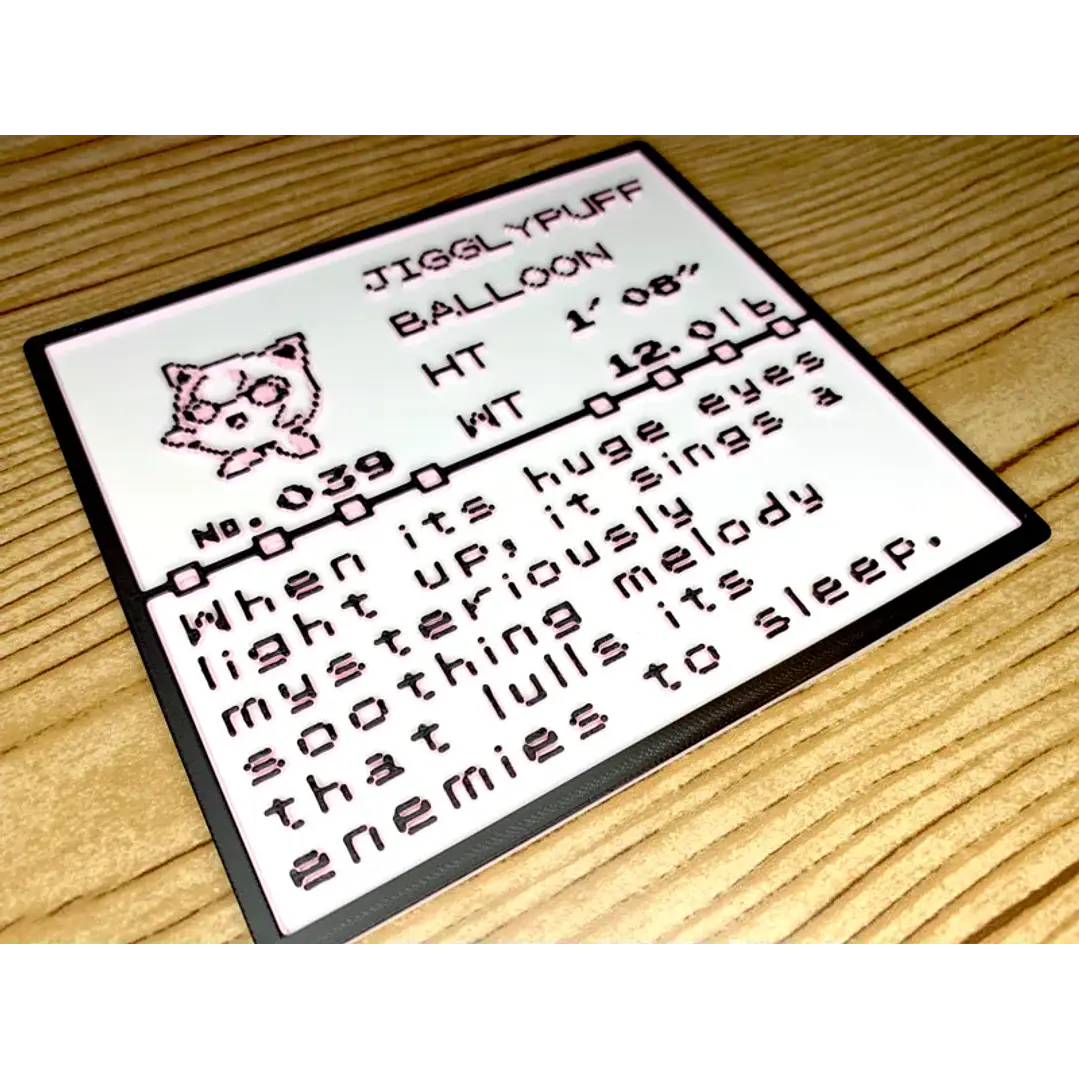 JIGGLYPUFF
BALLOON
HT 1′08″
WT 12.0lb
No.039
When its huge eyes
light up, it sings a
mysteriously
soothing melody
that lulls its
enemies to sleep.